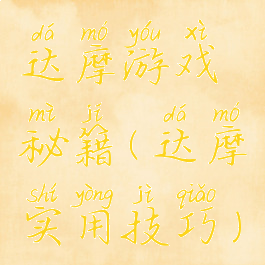 dá mó yóu xì
达摩游戏
mì jí dá mó
秘籍(达摩
shí yòng jì qiǎo
实用技巧)